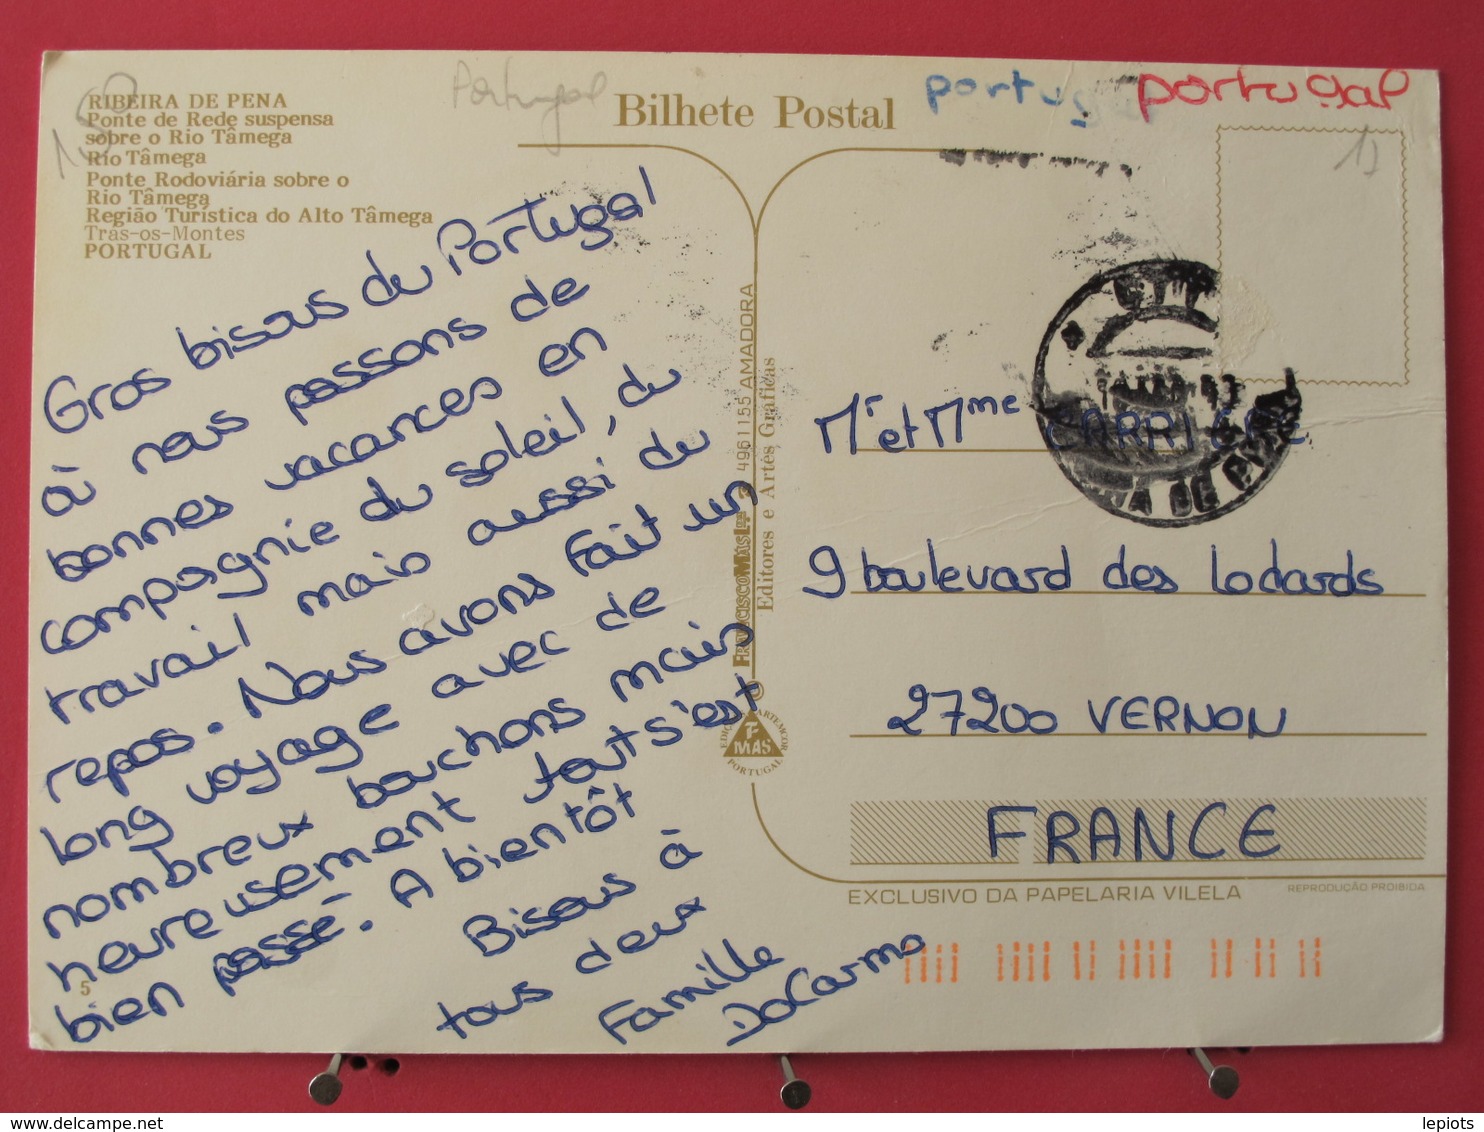 Portugal
portugal
portugal
RIBEIRA DE PENA
Ponte de Rede suspensa
sobre o Rio Tâmega
Rio Tâmega
Ponte Rodoviária sobre o
Rio Tâmega
Região Turística do Alto Tâmega
Tras-os-Montes
PORTUGAL
Bilhete Postal
Gros bisous du Portugal
où nous passons de
bonnes vacances en
compagnie du soleil, du
travail mais aussi du
repos. Nous avons fait un
long voyage avec de
nombreux bouchons mais
heureusement tout s'est
bien passé. A bientôt
Bisous à
tous deux
Famille
DoCarmo
5
FRANCISCO MÁS L.DA 4961155 AMADORA
Editores e Artes Gráficas
MAS
PORTUGAL
Mr et Mme CARRIERE
9 boulevard des Lodards
27200 VERNON
FRANCE
EXCLUSIVO DA PAPELARIA VILELA
REPRODUÇÃO PROIBIDA
lepiots